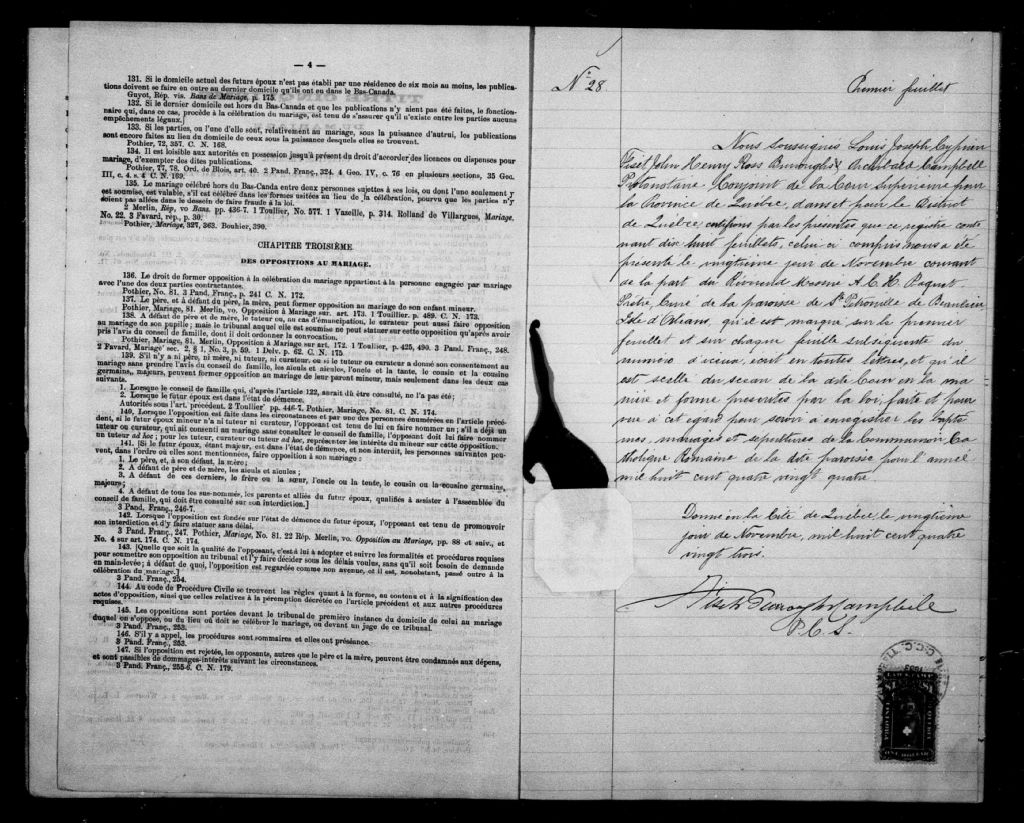 — 4 —
131. Si le domicile actuel des futurs époux n'est pas établi par une résidence de six mois au moins, les publica-
tions doivent se faire en outre au dernier domicile qu'ils ont eu dans le Bas-Canada.
Guyot, Rép. vis. Bans de Mariage, p. 175.
132. Si le dernier domicile est hors du Bas-Canada et que les publications n'y aient pas été faites, le fonction-
naire qui, dans ce cas, procède à la célébration du mariage, est tenu de s'assurer qu'il n'existe entre les parties aucuns
empêchements légaux.]
133. Si les parties, ou l'une d'elle sont, relativement au mariage, sous la puissance d'autrui, les publications
sont encore faites au lieu du domicile de ceux sous la puissance desquels elles se trouvent.
Pothier, 72, 357. C. N. 168.
134. Il est loisible aux autorités en possession jusqu'à présent du droit d'accorder des licences ou dispenses pour
mariage, d'exempter des dites publications.
Pothier, 77, 78. Ord. de Blois, art. 40. 2 Pand. Franç., 324. 4 Geo. IV, c. 76 en plusieurs sections, 35 Geo.
III, c. 4. s. 4 C. N. 169.
135. Le mariage célébré hors du Bas-Canda entre deux personnes sujettes à ses lois, ou dont l'une seulement y
est soumise, est valable, s'il est célébré dans les formes usitées au lieu de la célébration, pourvu que les parties n'y
soient pas allées dans le dessein de faire fraude à la loi.
2 Merlin, Rép, vo Bans. pp. 436-7. 1 Toullier, No. 577. 1 Vazeille, p. 314. Rolland de Villargues, Mariage.
No. 22. 3 Favard, rép., p. 30.
Pothier, Mariage, 327, 363. Bouhier, 390.
CHAPITRE TROISIÈME.
DES OPPOSITIONS AU MARIAGE.
136. Le droit de former opposition à la célébration du mariage appartient à la personne engagée par mariage
avec l'une des deux parties contractantes.
Pothier, No. 81. 3 Pand. Franç., p. 241 C. N. 172.
137. Le père, et à défaut du père, la mère, peut former opposition au mariage de son enfant mineur.
Pothier, Mariage, 81. Merlin, vo. Opposition à Mariage sur. art. 173. 1 Touillier. p. 489. C. N. 173.
138. A défaut de père et de mère, le tuteur ou, au cas d'émancipation, le curateur peut aussi faire opposition
au mariage de son pupille; mais le tribunal auquel elle est soumise ne peut statuer sur cette opposition qu'après avoir
pris l'avis du conseil de famille, dont il doit ordonner la convocation.
Pothier, Mariage, 81. Merlin, Opposition à Mariage sur art. 172. 1 Toullier, p. 425, 490. 3 Pand. Franç., 248.
2 Favard, Mariage sec. 2. § 1, No. 3, p. 59. 1 Delv. p. 62. C. N. 175
139. S'il n'y a ni père, ni mère, ni tuteur, ni curateur, ou si le tuteur ou curateur a donné son consentement au
mariage sans prendre l'avis du conseil de famille, les aïeuls et aïeules, l'oncle et la tante, le cousin et la cousine
germains, majeurs, peuvent former opposition au mariage de leur parent mineur, mais seulement dans les deux cas
suivants.
1. Lorsque le conseil de famille qui, d'après l'article 122, aurait du être consulté, ne l'a pas été;
2. Lorsque le futur époux est dans l'état de démence.
Autorités sous l'art. précédent. 2 Toullier pp. 446-7. Pothier, Mariage, No. 81. C. N. 174.
140. Lorsque l'opposition est faite dans les circonstances et par une des personnes énumérées en l'article précé-
dent, si le futur époux mineur n'a ni tuteur ni curateur, l'opposant est tenu de lui en faire nommer un; s'il a déjà un
tuteur ou curateur, qui ait consenti au mariage sans consulter le conseil de famille, l'opposant doit lui faire nommer
un tuteur ad hoc; pour les tuteur, curateur ou tuteur ad hoc, représenter les intérêts du mineur sur cette opposition.
141. Lorsque le futur époux, étant majeur, est dans l'état de démence, et non interdit, les personnes suivantes peu-
vent, dans l'ordre où elles sont mentionnées, faire opposition à son mariage:
1. Le père, et, à son défaut, la mère;
2. A défaut de père et de mère, les aïeuls et aïeules;
3. A défaut de ces derniers, le frère ou la sœur, l'oncle ou la tente, le cousin ou la cousine germains,
majeurs;
4. A défaut de tous les sus-nommés, les parents et alliés du futur époux, qualifiés à assister à l'assemblée du
conseil de famille, qui doit être consulté sur son interdiction.]
3 Pand. Franç., 246-7.
142. Lorsque l'opposition est fondée sur l'état de démence du futur époux, l'opposant est tenu de promouvoir
son interdiction et d'y faire statuer sans délai.
3 Pand. Franç., 247. Pothier, Mariage, No. 81. 22 Rép. Merlin, vo. Opposition au Mariage, pp. 88 et suiv., et
No. 4 sur art. 174. C. N. 174.
143. [Quelle que soit la qualité de l'opposant, c'est à lui à adopter et suivre les formalités et procédures requises
pour soumettre son opposition au tribunal et l'y faire décider sous les délais voulus, sans qu'il soit besoin de demande
en main-levée; à défaut de quoi, l'opposition est regardée comme non avenue, et il est, nonobstant, passé outre à la
célébration du mariage.]
3 Pand. Franç., 254.
144. Au code de Procédure Civile se trouvent les règles quant à la forme, au contenu et à la signification des
actes d'opposition, ainsi que celles relatives à la péremption décrétée en l'article précédent et aux autres procédures
requises.
145. Les oppositions sont portées devant le tribunal de première instance du domicile de celui au mariage
duquel on s'oppose, ou du lieu où doit se célébrer le mariage, ou devant un juge de ce tribunal.
3 Pand. Franç., 253.
146. S'il y a appel, les procédures sont sommaires et elles ont préséance.
3 Pand. Franç., 253.
147. Si l'opposition est rejetée, les opposants, autres que le père et la mère, peuvent être condamnés aux dépens,
et sont passibles de dommages-intérêts suivant les circonstances.
3 Pand. Franç., 255-6. C. N. 179.
No 28
Premier feuillet
Nous Soussignés Louis Joseph Cyprien
Fiset, John Henry Ross Burroughs & Archibald Campbell
Protonotaire-Conjoint de la Cour Supérieure pour
la Province de Québec, dans et pour le District
de Québec certifions par les présentes que ce registre conte
nant dix huit feuillets, celui ci compris nous a été
présenté le vingtième jour de Novembre courant
de la part du Révérend Messire A. C. H. Paquet
Prêtre, Curé de la paroisse de Ste Pétronille de Beaulieu
Isle d'Orléans, qu'il est marqué sur le premier
feuillet et sur chaque feuille subséquente du
numéro d'iceux, écrit en toutes lettres, et qu'il
est scellé du sceau de la dite Cour en la ma
nière et forme prescrites par la loi, faite et pour
vue à cet égard pour servir à enregistrer les baptê
mes, mariages et sépultures de la Communion Ca
tholique Romaine de la dite paroisse pour l'année
mil huit cent quatre vingt quatre.
Donné en la Cité de Québec, le vingtième
jour de Novembre, mil huit cent quatre
vingt trois.
Fiset Burroughs Campbell
P.C.S.
ONE DOLLAR